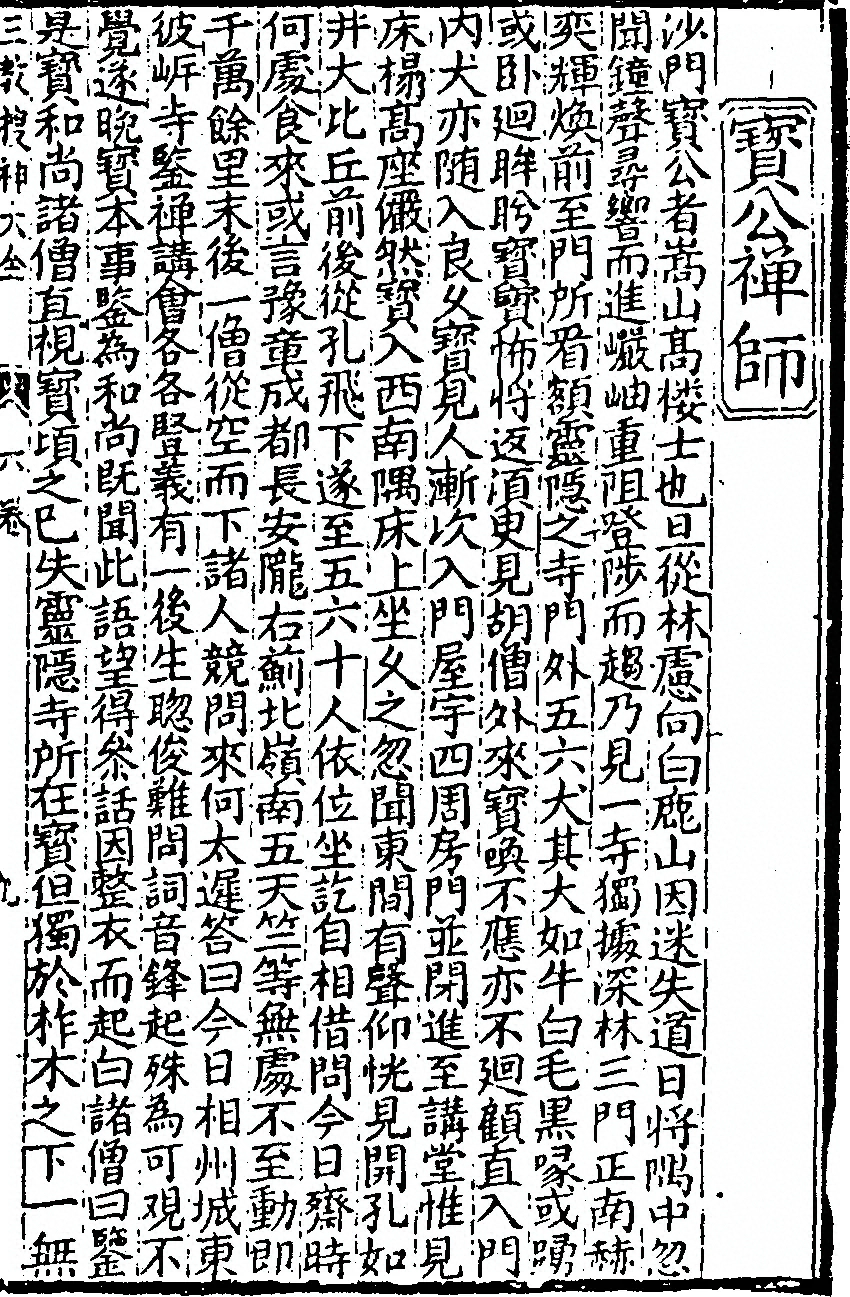 寶公禅師
沙門寶公者嵩山髙棲士也旦從林慮向白鹿山因迷失道日将隅中忽
聞鐘聲尋響而進巖岫重阻登陟而趨乃見一寺獨據深林三門正南赫
奕輝煥前至門所看額靈隠之寺門外五六犬其大如牛白毛黒喙或踴
或卧廻眸眄寶寶怖将返湏臾見胡僧外來寶喚不應亦不廻顧直入門
内犬亦随入良久寶見人漸次入門屋宇四周房門並閉進至講堂惟見
床榻髙座儼然寶入西南隅床上坐久之忽聞東間有聲仰恍見開孔如
井大比丘前後從孔飛下遂至五六十人依位坐訖自相借問今日齋時
何處食來或言豫章成都長安隴右薊北嶺南五天竺等無處不至動即
千萬餘里末後一僧從空而下諸人競問來何太遲答曰今日相州城東
彼岸寺鑒禅講會各各竪義有一後生聦俊難問詞音鋒起殊為可观不
覺遂晚寶本事鑒為和尚既聞此語望得叅話因整衣而起白諸僧曰鑒
是寶和尚諸僧直視寶頃之已失靈隠寺所在寶但獨於柞木之下一無
三教捜神大全 六卷 九